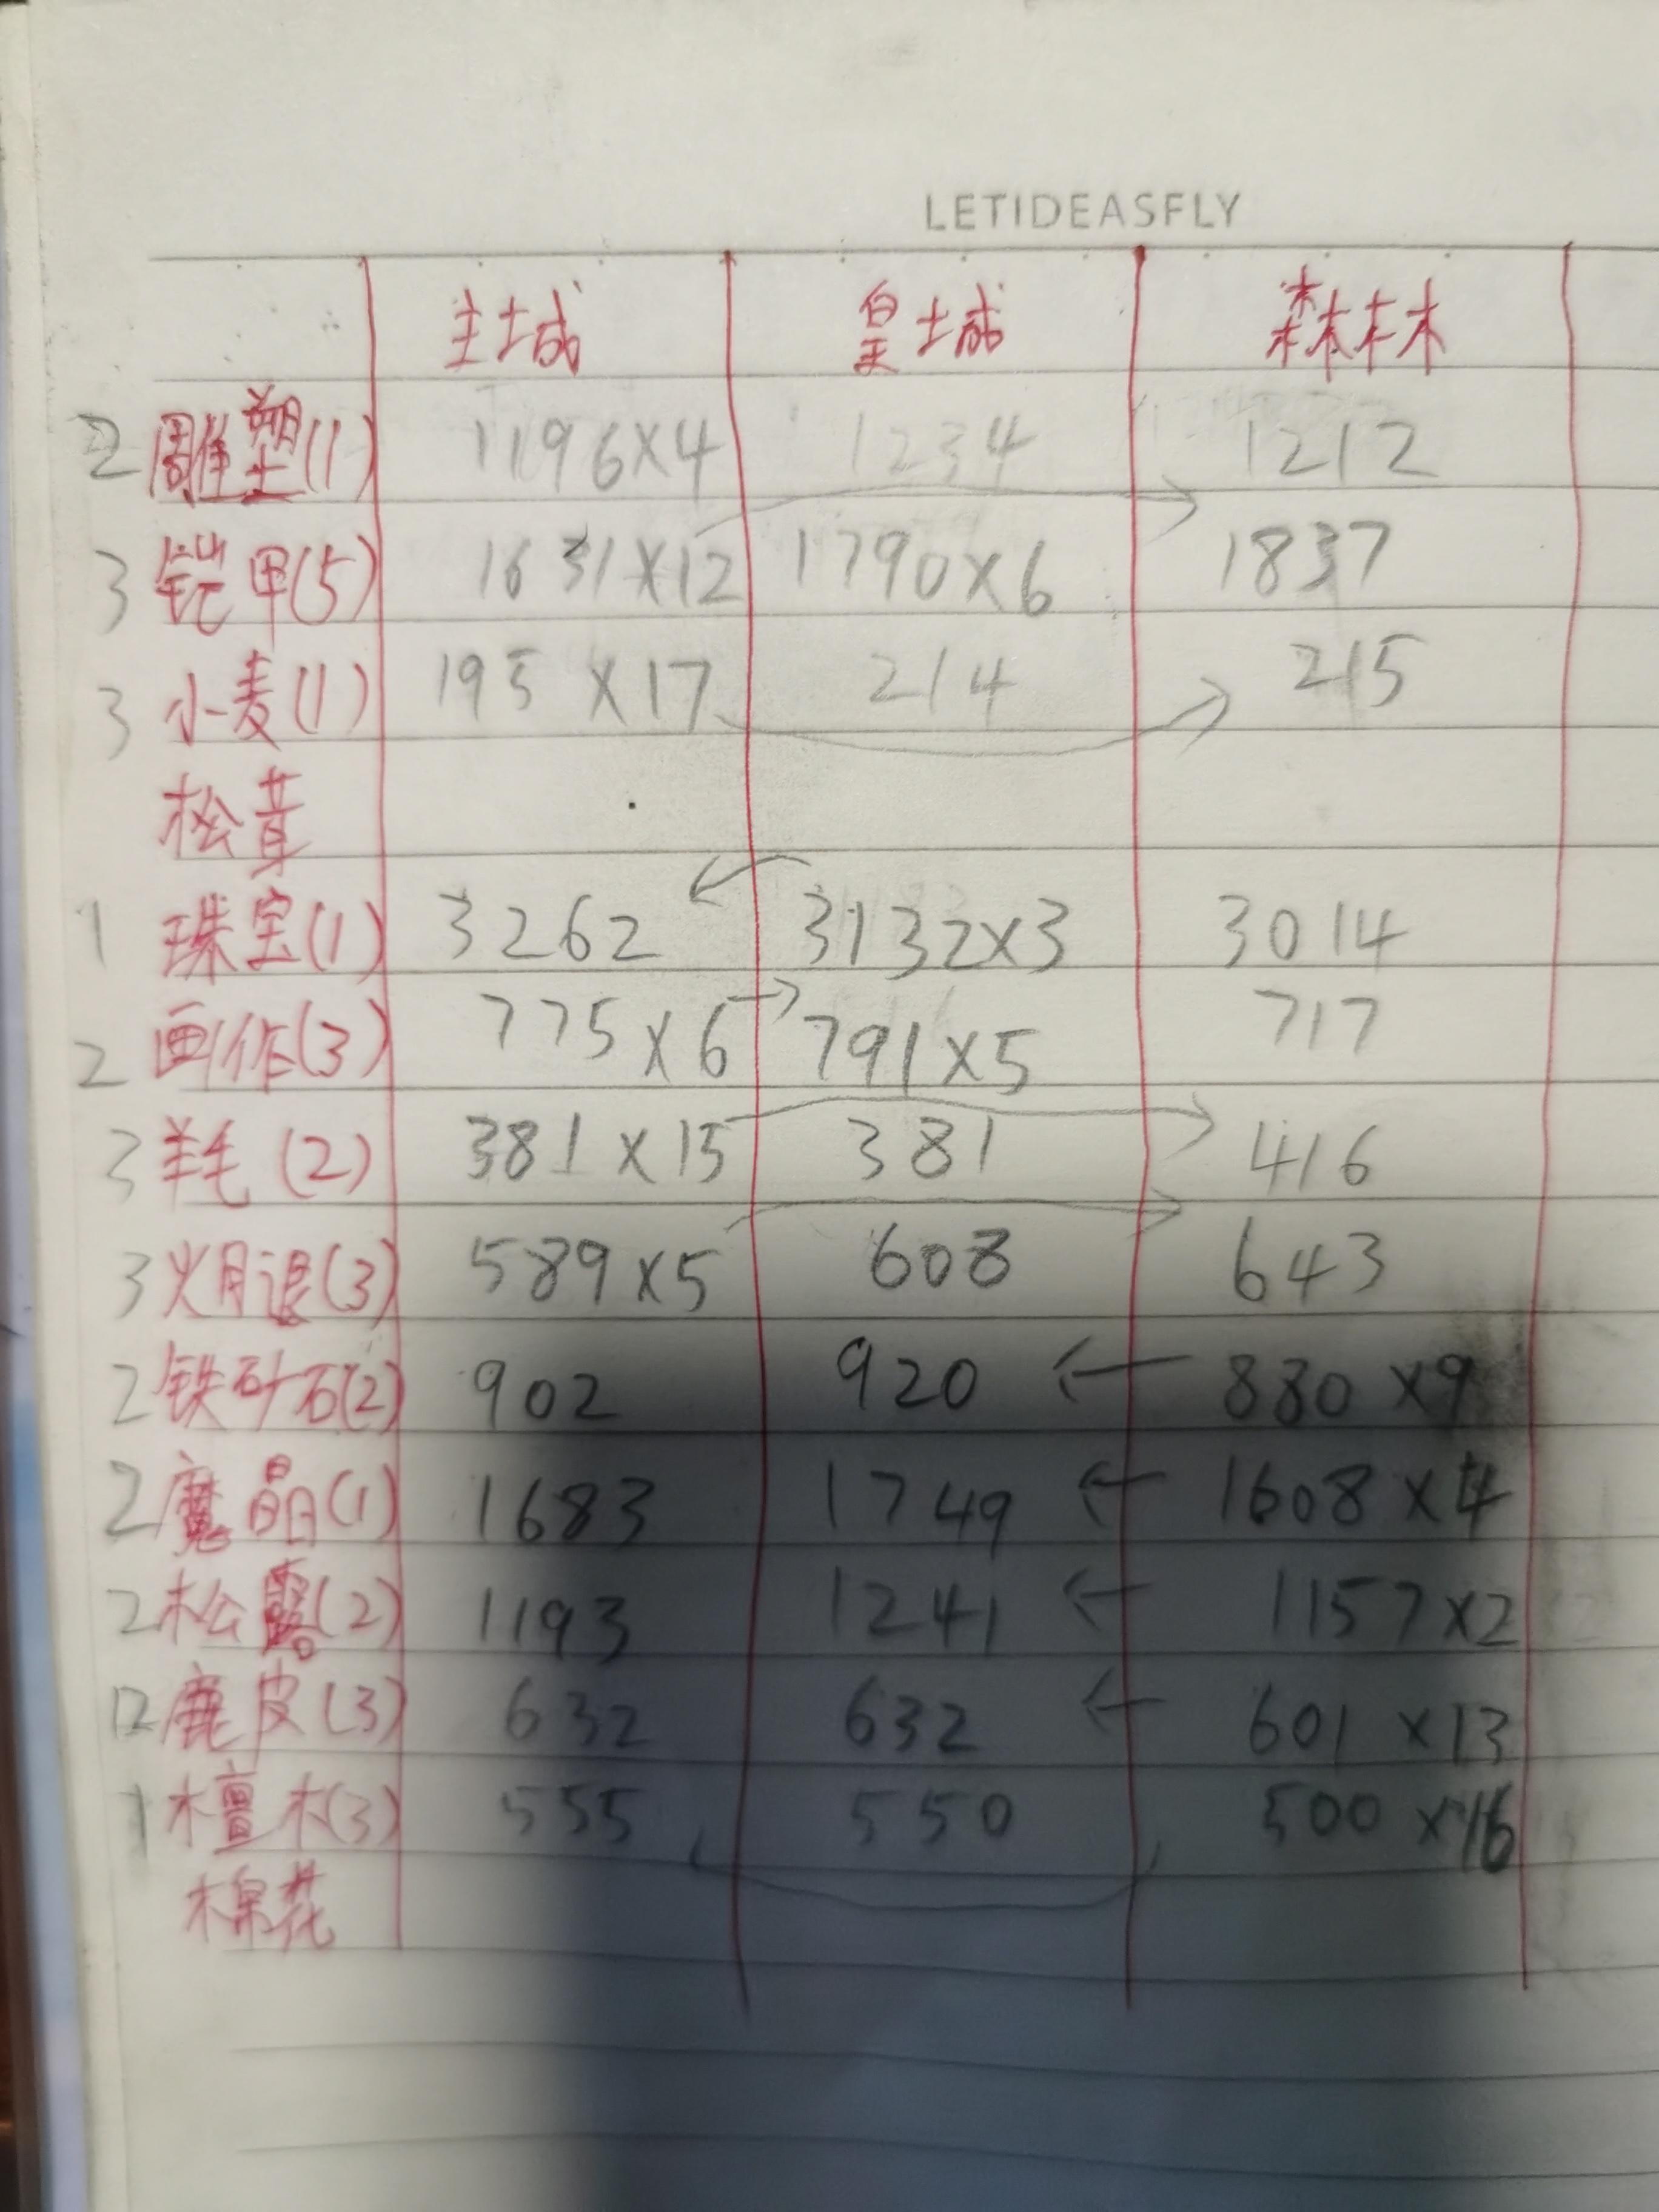 LETIDEASFLY
主城 皇城 森林
2 雕塑(1) 1196×4 1234 1212
3 铠甲(5) 1631×12 1790×6 → 1837
3 小麦(1) 195×17 214 → 215
松茸
1 珠宝(1) 3262 ← 3132×3 3014
2 画作(3) 775×6 → 791×5 717
3 羊毛(2) 381×15 381 → 416
3 火月退(3) 589×5 608 → 643
2 铁矿石(2) 902 920 ← 880×9
2 魔晶(1) 1683 1749 ← 1608×4
2 松露(2) 1193 1241 ← 1157×2
2 鹿皮(3) 632 632 ← 601×13
1 檀木(3) 555 550 500×16
棉花